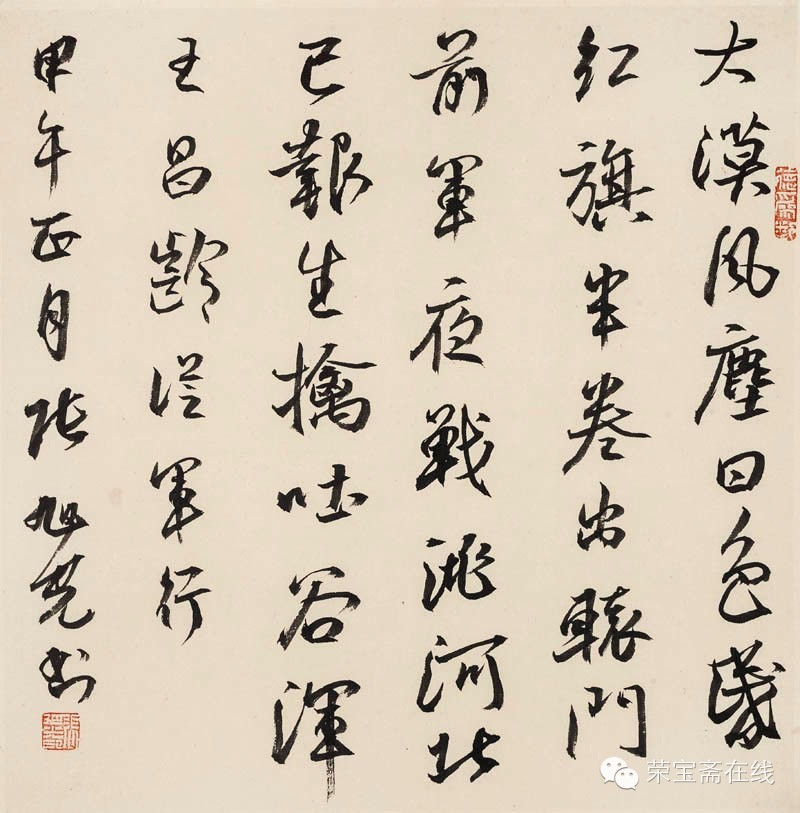 大漠風塵日色昏
紅旗半卷出轅門
前軍夜戰洮河北
已報生擒吐谷渾
王昌齡從軍行
甲午正月張旭光書
荣宝斋在线